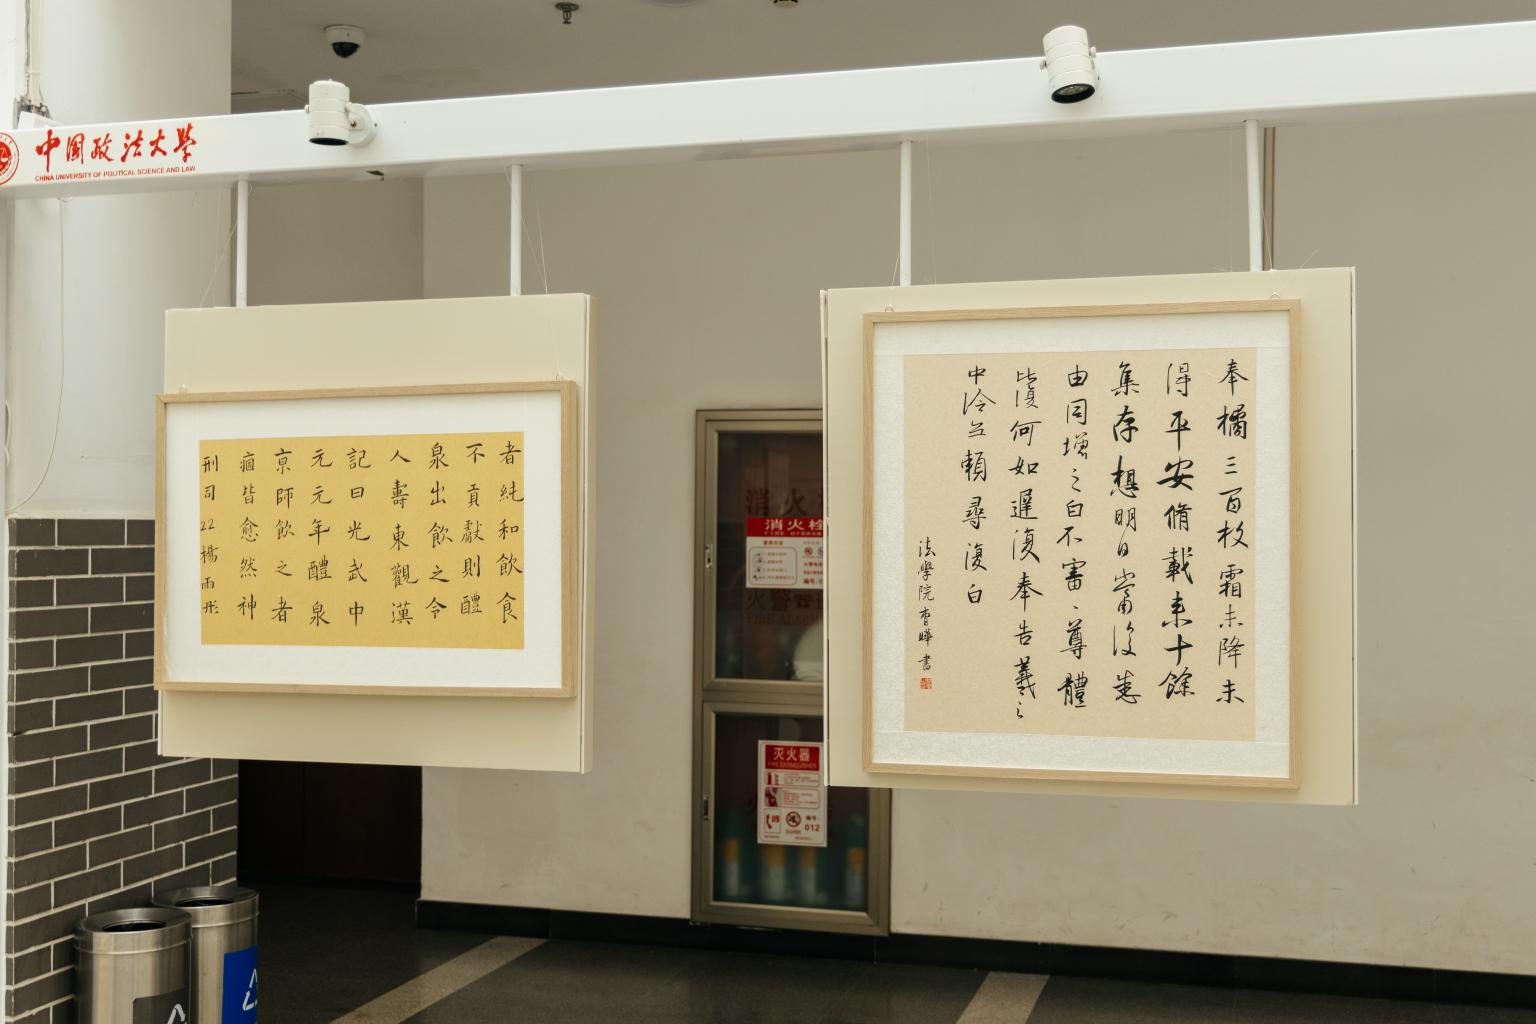 中国政法大學
CHINA UNIVERSITY OF POLITICAL SCIENCE AND LAW
者純和飲食
不貢獻則醴
泉出飲之令
人壽東觀漢
記曰光武中
元元年醴泉
京師飲之者
痼皆愈然神
刑司22楊雨彤
奉橘三百枚霜未降未
得平安脩載來十餘
集存想明日當復悉
由同增之白不審、尊體
比復何如遲復奉告羲之
中冷無賴尋復白
法學院曹曄書
消火栓
FIRE HYDRANT
火警
FIRE ALARM
灭火器
FIRE EXTINGUISHER
编号:
012